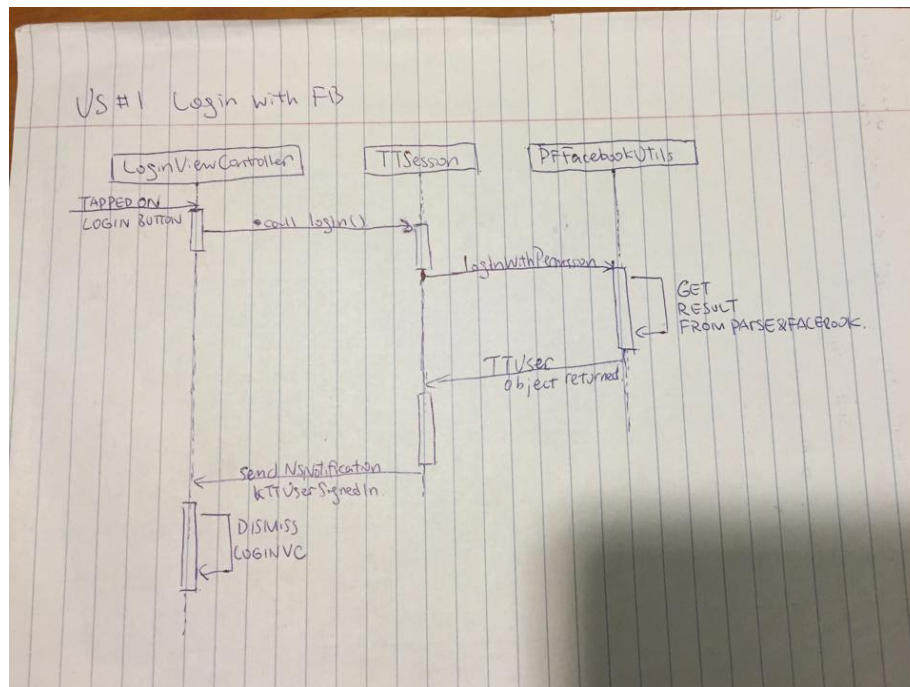 US #1 Login with FB
LoginViewController
TTSession
PFFacebookUtils
TAPPED ON
LOGIN BUTTON
call login()
loginWithPermission
GET
RESULT
FROM PARSE&FACEBOOK.
TTUser
object returned
send NSNotification
kTTUserSignedIn
DISMISS
LOGINVC